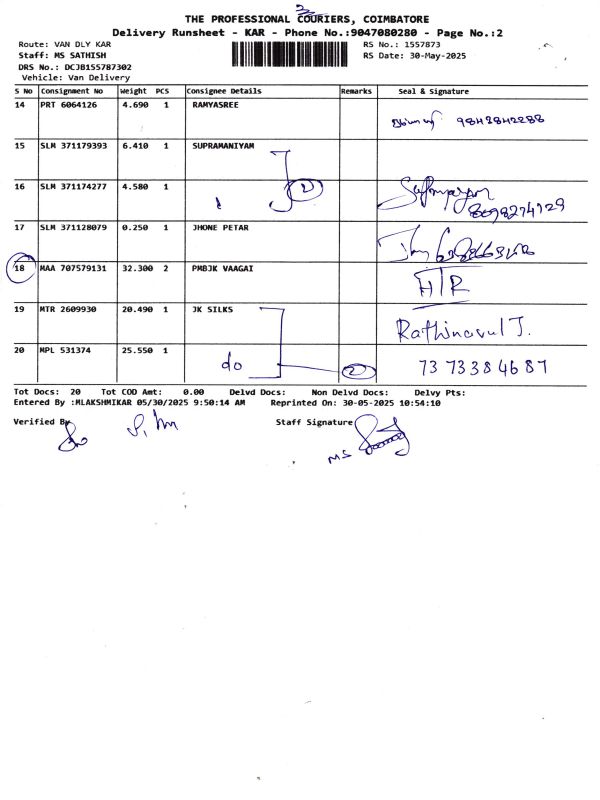 2
THE PROFESSIONAL COURIERS, COIMBATORE
Delivery Runsheet - KAR - Phone No.:9047080280 - Page No.:2
Route: VAN DLY KAR RS No.: 1557873
Staff: MS SATHISH RS Date: 30-May-2025
DRS No.: DCJB155787302
Vehicle: Van Delivery
S No Consignment No Weight PCS Consignee Details Remarks Seal & Signature
14 PRT 6064126 4.690 1 RAMYASREE 9843842288
15 SLM 371179393 6.410 1 SUPRAMANIYAM
16 SLM 371174277 4.580 1 2 8098274729
17 SLM 371128079 0.250 1 JHONE PETAR
18 MAA 707579131 32.300 2 PMBJK VAAGAI HTR
19 MTR 2609930 20.490 1 JK SILKS Rathinavul J.
20 MPL 531374 25.550 1 do 2 7373384687
Tot Docs: 20 Tot COD Amt: 0.00 Delvd Docs: Non Delvd Docs: Delvy Pts:
Entered By :MLAKSHMIKAR 05/30/2025 9:50:14 AM Reprinted On: 30-05-2025 10:54:10
Verified By Staff Signature
MS